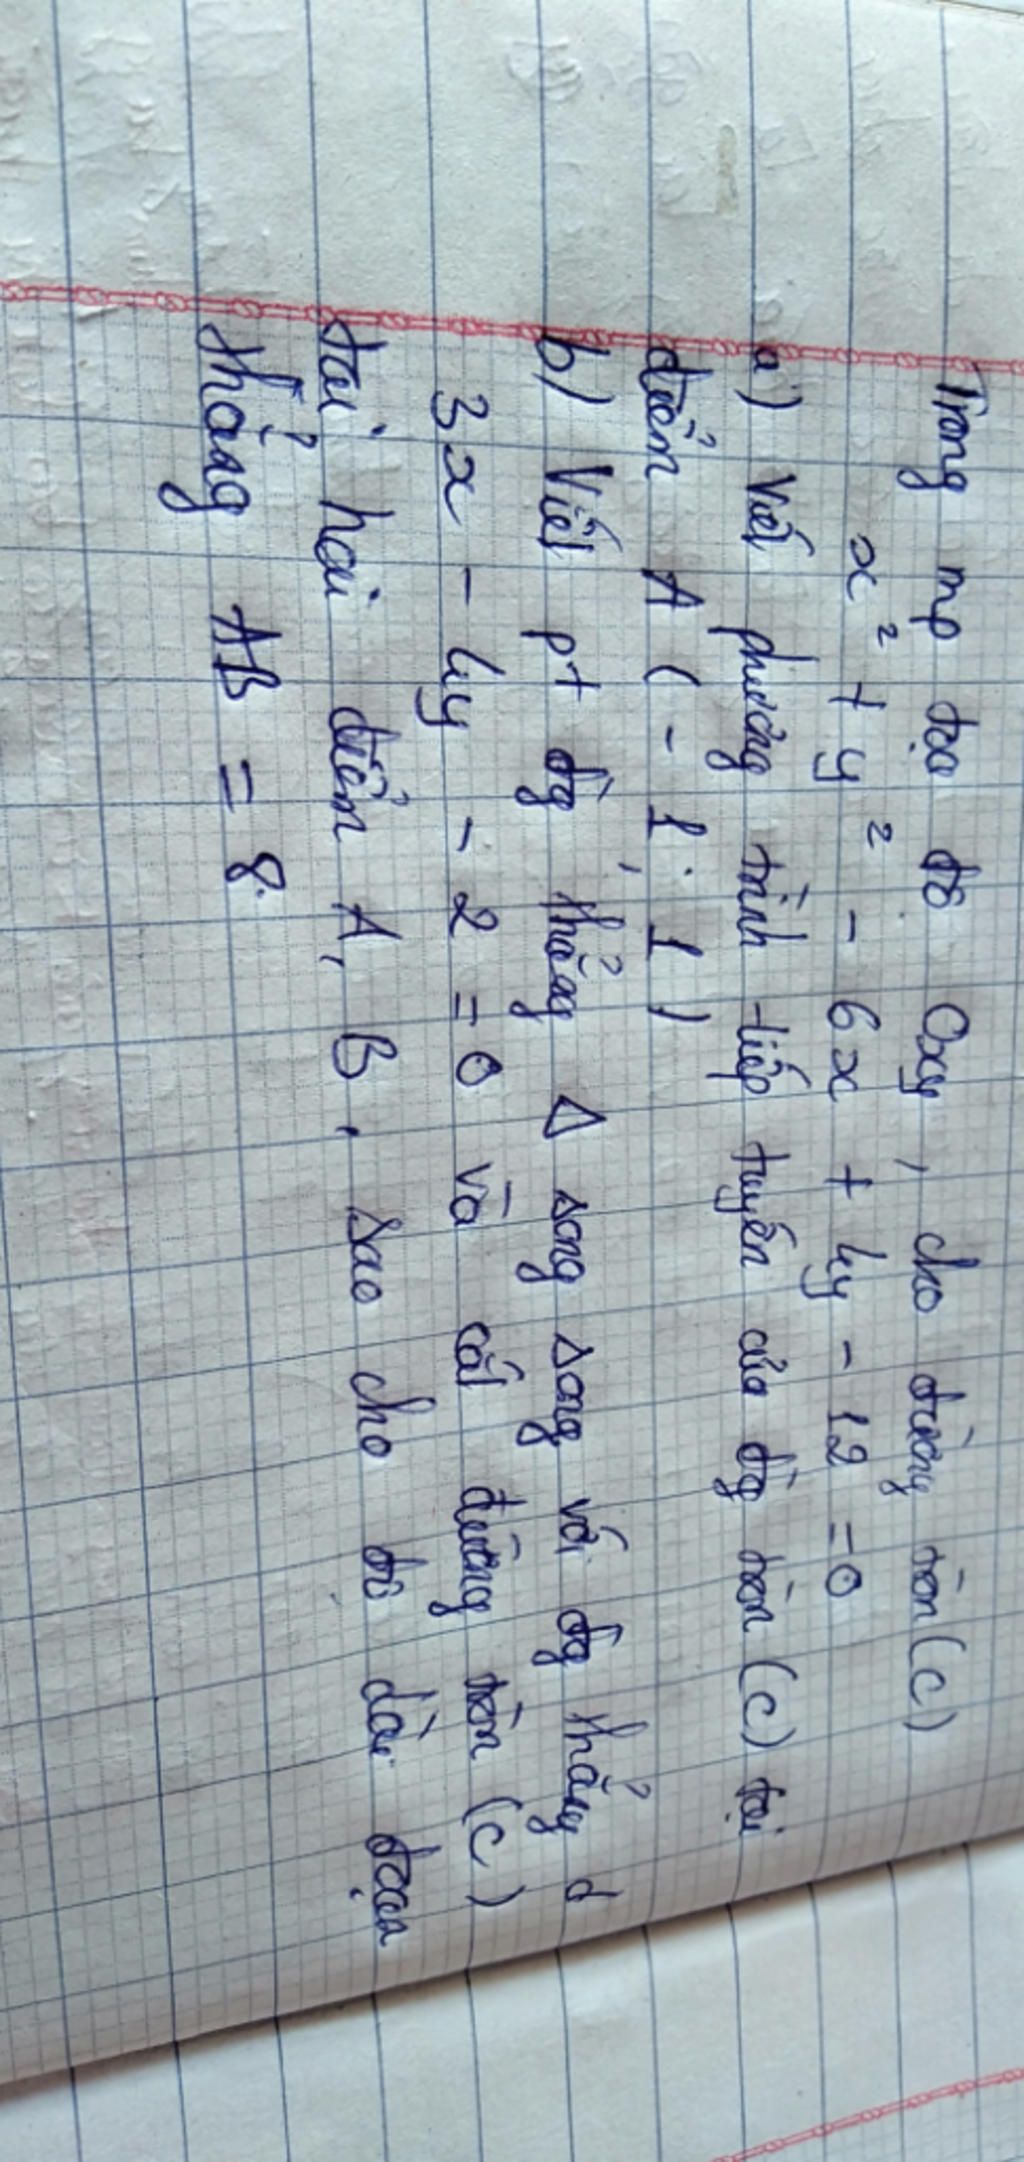 Trong mp tọa độ Oxy, cho đường tròn (C)
x² + y² - 6x + 4y - 12 = 0
a) Viết phương trình tiếp tuyến của đg tròn (C) tại
điểm A (-1; 1)
b) Viết pt đg thẳng Δ song song với đg thẳng d
3x - 4y - 2 = 0 và cắt đường tròn (C)
tại hai điểm A, B, sao cho độ dài đoạn
thẳng AB = 8.